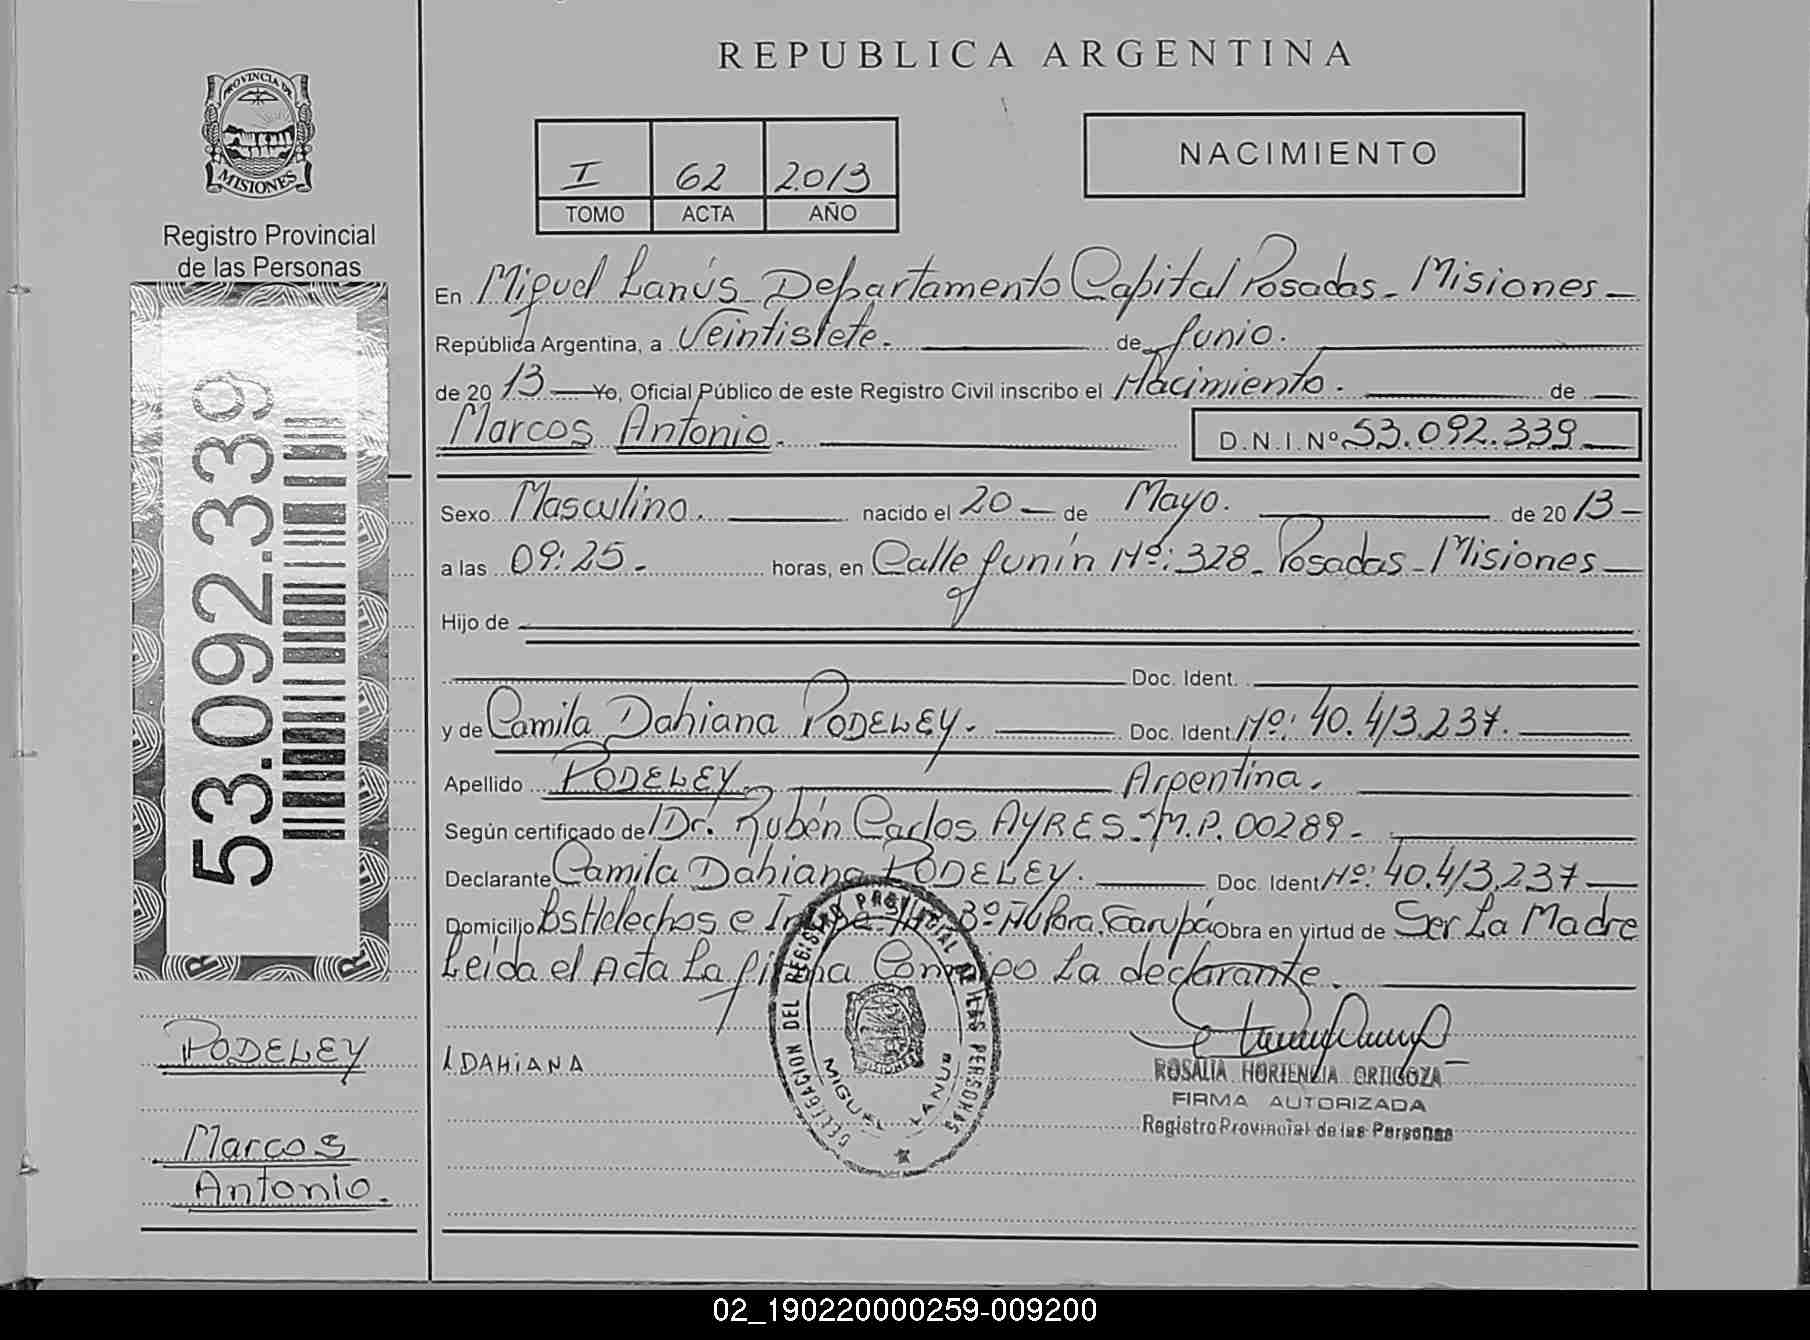 REPUBLICA ARGENTINA
PROVINCIA DE
MISIONES
Registro Provincial
de las Personas
I 62 2013
TOMO ACTA AÑO
NACIMIENTO
En Miguel Lanús Departamento Capital Posadas - Misiones -
República Argentina, a Veintisiete. de Junio.
de 20 13 Yo, Oficial Público de este Registro Civil inscribo el Nacimiento. de
Marcos Antonio. D.N.I.Nº 53.092.339
53.092.339
Sexo Masculino. nacido el 20 - de Mayo. de 20 13 -
a las 09:25 - horas, en Calle Junín Nº: 328 - Posadas - Misiones
Hijo de
Doc. Ident.
y de Camila Dahiana PODELEY. Doc. Ident. Nº: 40.413.237.
Apellido PODELEY Argentina.
Según certificado de Dr. Rubén Carlos AYRES - M.P. 00289 -
Declarante Camila Dahiana PODELEY. Doc. Ident Nº: 40.413.237
Domicilio Helechos e Garupá Obra en virtud de Ser La Madre
Leída el Acta La firma Conmigo La declarante.
DAHIANA
DELEGACION DEL REGISTRO PROVINCIAL DE LAS PERSONAS
MIGUEL LANUS
MISIONES
ROSALIA HORTENCIA ORTIGOZA
FIRMA AUTORIZADA
Registro Provincial de las Personas
PODELEY
Marcos
Antonio.
02_190220000259-009200